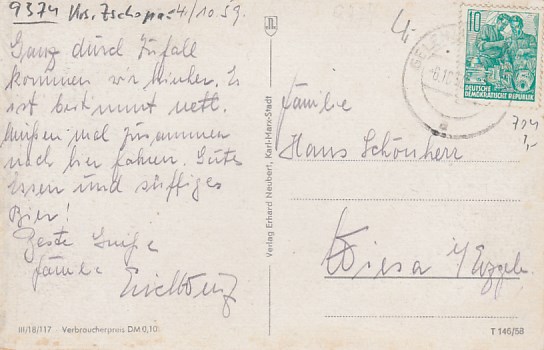 9374 Krs. Zschopau 4/10.59.
Ganz durch Zufall
kommen wir hierher. Es
ist bestimmt nett.
Müssen mal zusammen
nach hier fahren. Gutes
Essen und süffiges
Bier!
Beste Grüße
Familie
III/18/117 Verbraucherpreis DM 0,10
Verlag Erhard Neubert, Karl-Marx-Stadt
10
DEUTSCHE
DEMOKRATISCHE REPUBLIK
Familie
Hans Schönherr
Wiesa i/Erzgeb.
T 146/58